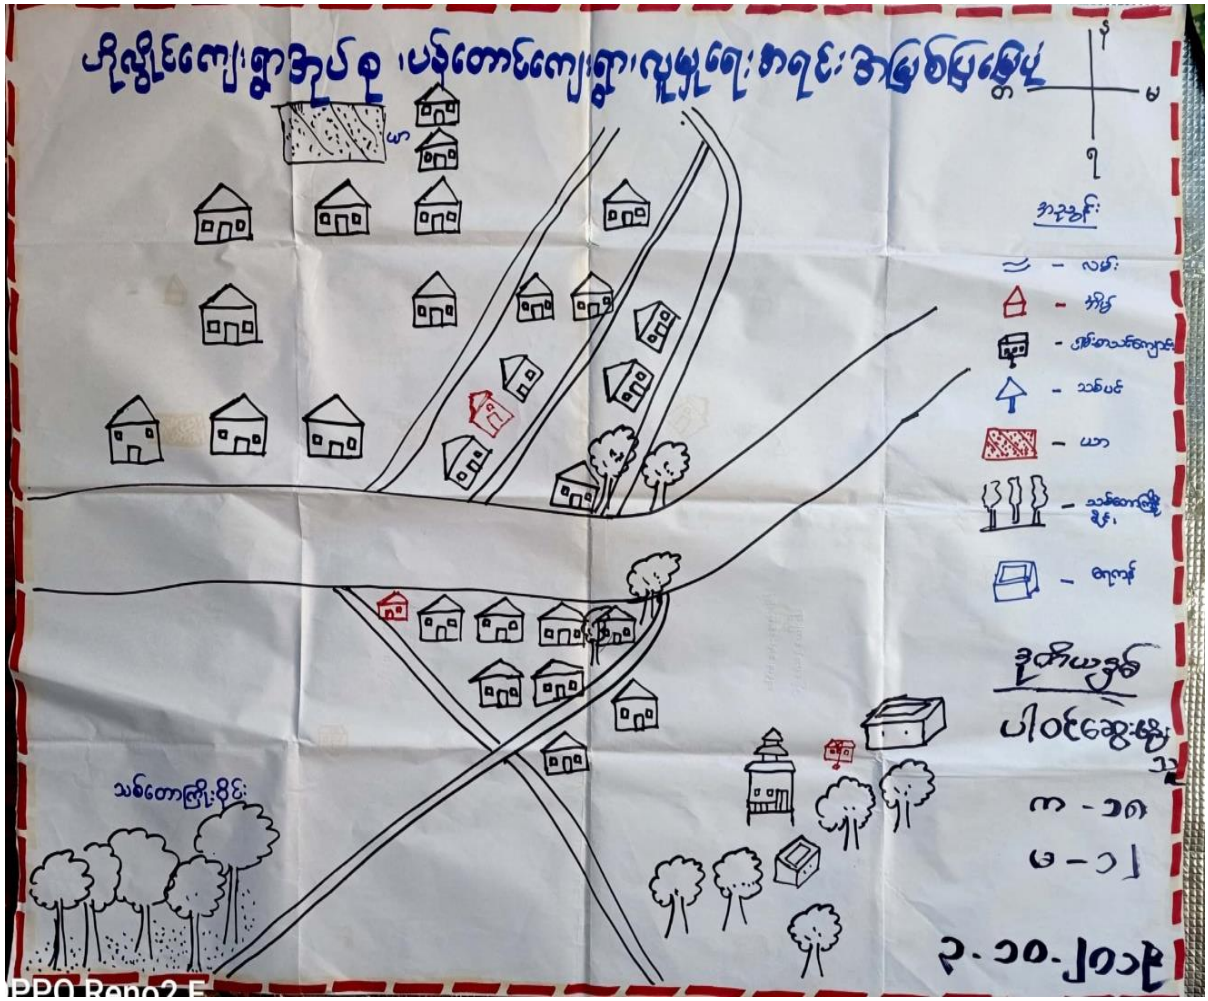 ဟိုလွိုင်ကျေးရွာအုပ်စု၊ ပန်တောင်ကျေးရွာ၊ လူမှုရေးအရင်းအမြစ်ပြမြေပုံ
ယာ
အညွှန်း
လမ်း
အိမ်
စာသင်ကျောင်း
သစ်ပင်
ယာ
သစ်တောကြိုးဝိုင်း
ရေကန်
ဒုတိယနှစ်
ပါဝင်ဆွေးနွေးသူ
က - ၁၈
မ - ၁၂
၃.၁၀.၂၀၁၉
သစ်တောကြိုးဝိုင်း
OPPO Reno2 F